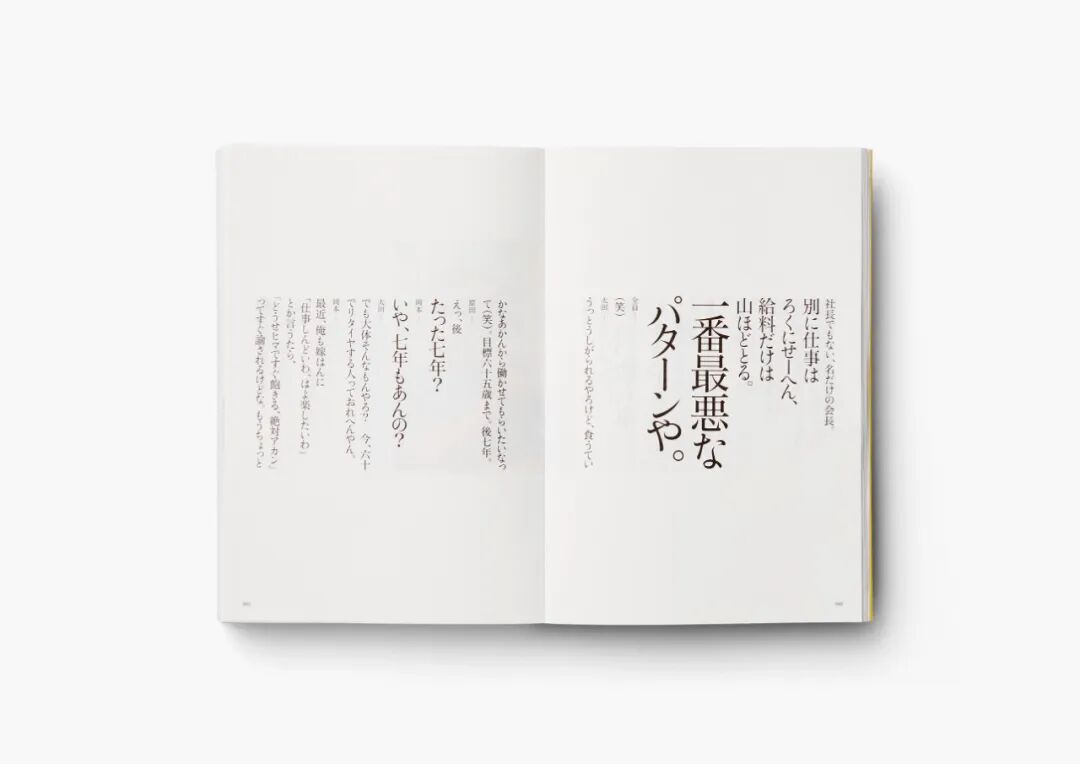 社長でもない、名だけの会長。
別に仕事は
ろくにせーへん、
給料だけは
山ほどとる。
一番最悪な
パターンや。
全員
(笑)
太田
うっとうしがられるやろけど、食うてい
かなあかんから働かせてもらいたいなっ
て(笑)。目標六十五歳まで。後七年。
原田
えっ、後
たった七年?
岡本
いや、七年もあんの?
太田
でも大体そんなもんやろ? 今、六十
でリタイヤする人っておれへんやん。
岡本
最近、俺も嫁はんに
「仕事しんどいわ。はよ楽したいわ」
とか言うたら、
「どうせヒマですぐ飽きる。絶対アカン」
つってすぐ諭されるけどな。もうちょっと